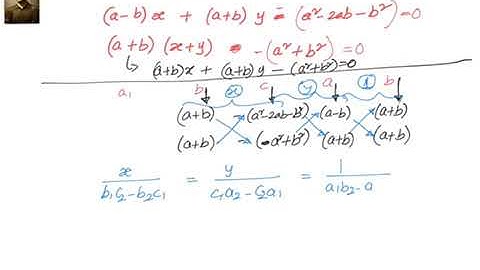 (a-b)x + (a+b)y = (a²-2ab-b²)=0
(a+b)(x+y) = -(a²+b²)=0
↳ (a+b)x + (a+b)y - (a²+b²)=0
a₁ b x c y a 1 b
(a+b) -(a²-2ab-b²) (a-b) (a+b)
(a+b) (-a²+b²) (a+b) (a+b)
x/(b₁c₂-b₂c₁) = y/(c₁a₂-c₂a₁) = 1/(a₁b₂-a